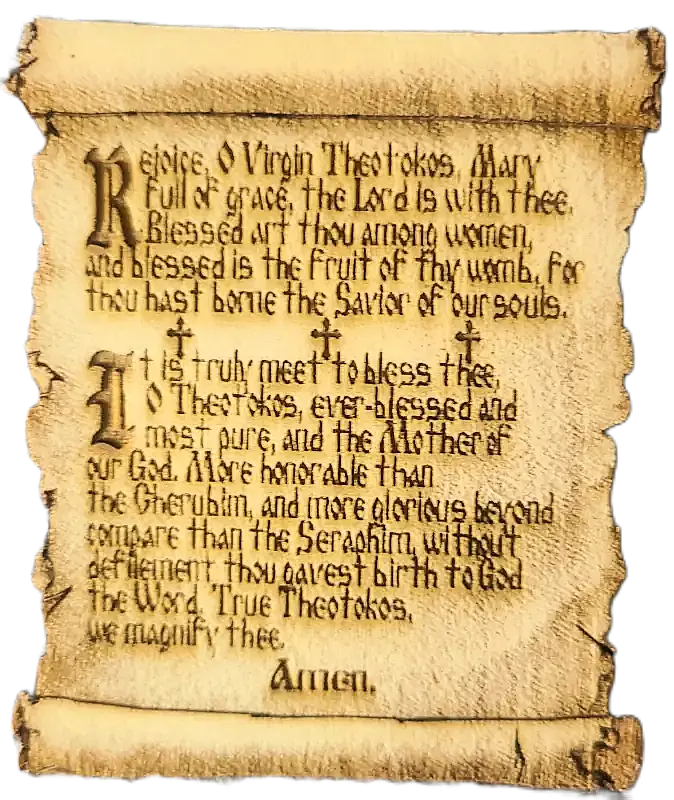 Rejoice, O Virgin Theotokos, Mary
full of grace, the Lord is with thee.
Blessed art thou among women,
and blessed is the fruit of thy womb, for
thou hast borne the Savior of our souls.
It is truly meet to bless thee,
O Theotokos, ever-blessed and
most pure, and the Mother of
our God. More honorable than
the Cherubim, and more glorious beyond
compare than the Seraphim, without
defilement thou gavest birth to God
the Word. True Theotokos,
we magnify thee.
Amen.